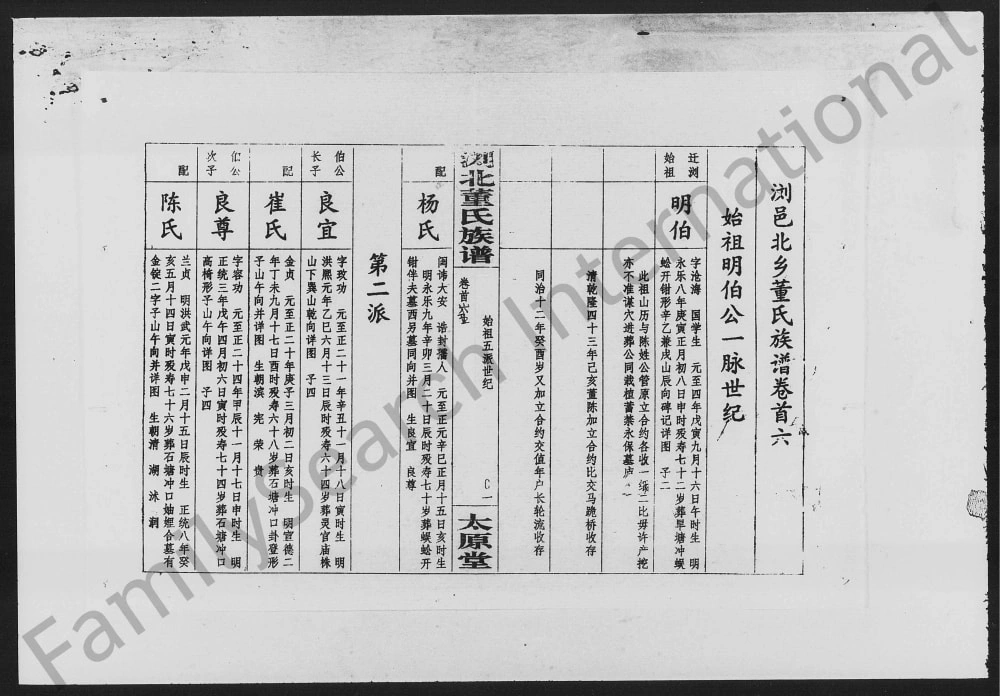 浏邑北乡董氏族谱卷首六
始祖明伯公一脉世纪
迁浏
始祖
明伯
字沧海 国学生 元至四年戊寅九月十六日午时生 明
永乐八年庚寅正月初八日申时殁寿七十二岁葬旱塘冲蜈
蚣开钳形辛乙兼戌山辰向碑记详图 子二
此祖山历与陈姓公管原立合约各收一纸二比毋许产挖
亦不准谋穴进葬公同栽植蓄禁永保墓庐
清乾隆四十三年己亥董陈加立合约比交马跪桥收存
同治十二年癸酉岁又加立合约交值年户长轮流收存
浏北董氏族谱
卷首六
始祖五派世纪
一
太原堂
配
杨氏
闺讳大安 诰封孺人 元至正元辛巳正月十五日亥时生
明永乐九年辛卯三月二十日辰时殁寿七十岁葬蜈蚣开
钳伴夫墓西另墓同向并图 生良宣 良尊
第二派
伯公
长子
良宜
字玫功 元至正二十一年辛丑十一月十八日寅时生 明
洪熙元年乙巳六月十三日辰时殁寿六十四岁葬灵官庙株
山下巽山乾向详图 子四
配
崔氏
金贞 元至正二十年庚子三月初二日亥时生 明宣德二
年丁未九月十七日酉时殁寿六十八岁葬石塘冲口卦登形
子山午向并详图 生朝滨 宪 荣 贵
伯公
次子
良尊
字容功 元至正二十四年甲辰十一月十七日申时生 明
正统三年戊午四月初六日寅时殁寿七十四岁葬石塘冲口
高椅形子山午向详图 子四
配
陈氏
兰贞 明洪武元年戊申二月十五日辰时生 正统八年癸
亥五月十四日寅时殁寿七十六岁葬石塘冲口妯娌合墓有
金锭二字子山午向并详图 生朝清 湖 沭 润
FamilySearch International